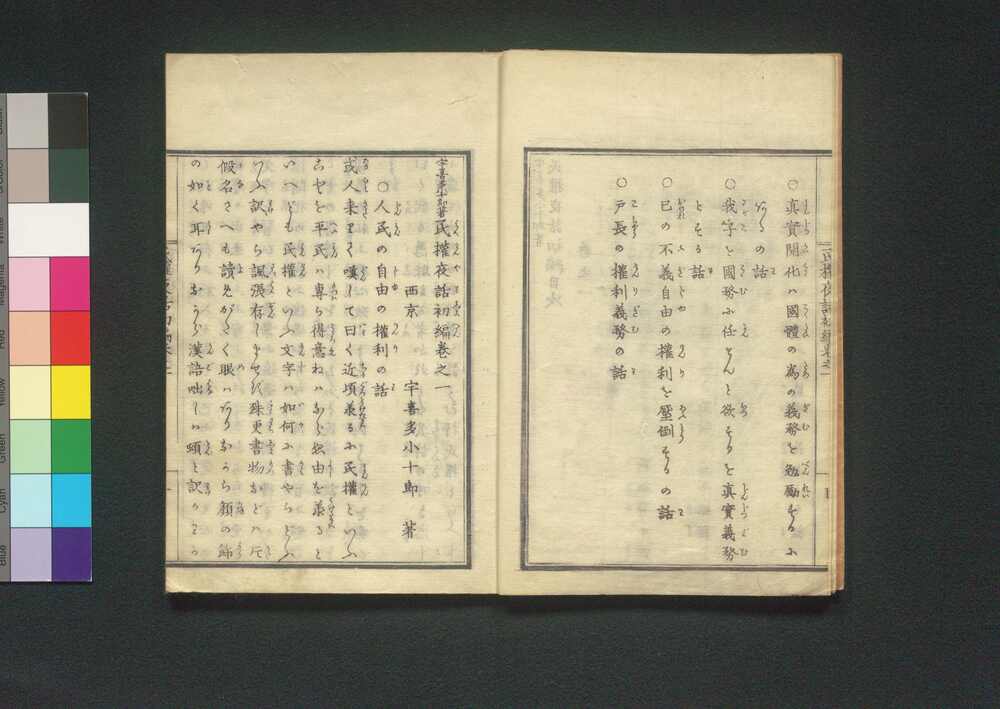 ○眞實開化ハ國體の為の義務を勉勵するに
あるの話
○我守と國務に任せんと欲するを眞實義務
とする話
○己の不義自由の權利を壓倒するの話
○戸長の權利義務の話
宇喜多小十郎著民權夜話初編卷之一
西京 宇喜多小十郎 著
○人民の自由の權利の話
或人来りて嘆して曰く近頃承るに民權といふ
ことを平民ハ専ら得意ねハならぬ由を承ると
いへども民權といふ文字ハ如何に書やらどふ
いふ訳やら諷張存しませぬ殊更書物などハ片
假名さへも讀兼がたく眼ハありながら額の飾
の如く耳ありながら漢語咄しハ頓と訳からら